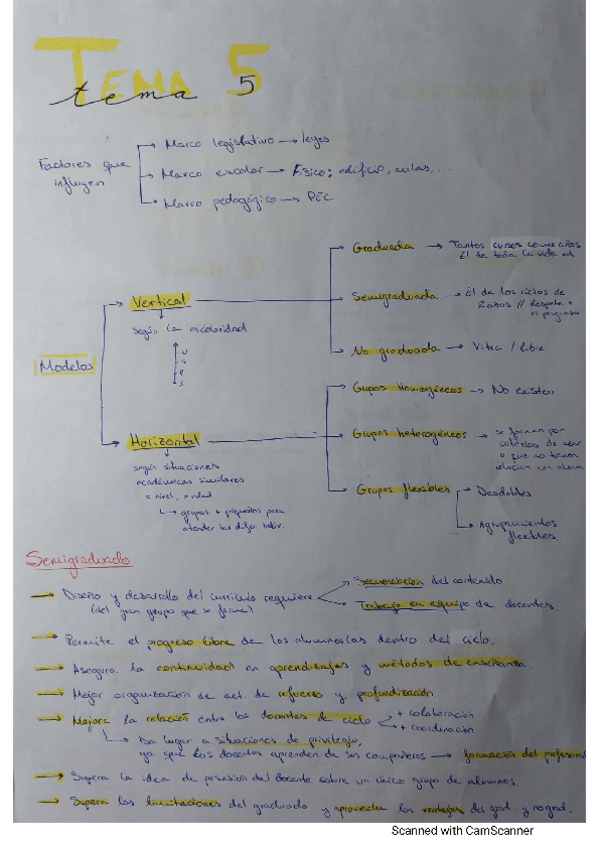 TEMA 5
tema 5
Factores que influyen
Marco legislativo → leyes
Marco escolar → Físico: edificio, aulas, ...
Marco pedagógico → PEC
Modelos
Vertical
según la escolaridad
Graduada → Tantos cursos como años
El de toda la vida
Semigraduada → El de los ciclos de
2 años // Respeta +
el progreso
No graduada → / libre
Horizontal
según situaciones
académicas similares
= nivel, = edad
↳ grupos + pequeños para
atender las difer. indiv.
Grupos homogéneos → No existen
Grupos heterogéneos → se forman por
criterios de azar
o que no tienen
relación
Grupos flexibles
Desdobles
Agrupamientos
flexibles
Semigraduado
→ Diseño y desarrollo del currículo requiere
(del gran grupo que se forma)
Secuenciación del contenido
Trabajo en equipo de docentes.
→ Permite el progreso libre de los alumnos/as dentro del ciclo.
→ Asegura la continuidad en aprendizajes y métodos de enseñanza.
→ Mejor organización de act. de refuerzo y profundización.
→ Mejora la relación entre los docentes de ciclo
+ colaboración
+ coordinación
↳ Da lugar a situaciones de privilegio,
ya que los docentes aprenden de sus compañeros → formación del
→ Supera la idea de posesión del docente sobre un único grupo de alumnos
→ Supera las limitaciones del graduado y aprovecha las ventajas del grad. y no grad.
Scanned with CamScanner